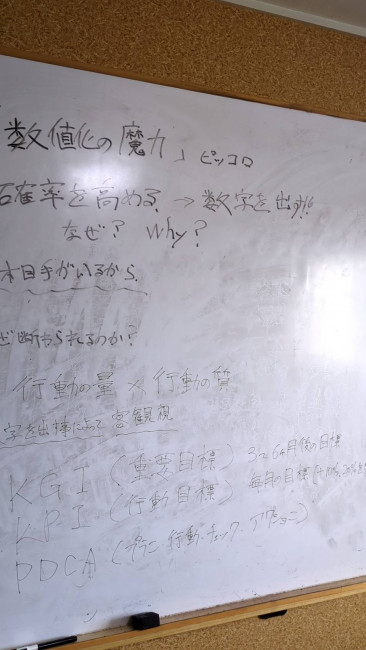 数値化の魔力」 ピッコロ
確率を高める → 数字を出す!!
なぜ? Why?
相手がいるから
断られるのか?
行動の量 × 行動の質
字を出す事によって 客観視
KGI (重要目標) 3〜6ヶ月後の目標
KPI (行動目標) 毎月の目標
PDCA (プラン・行動・チェック・アクション)